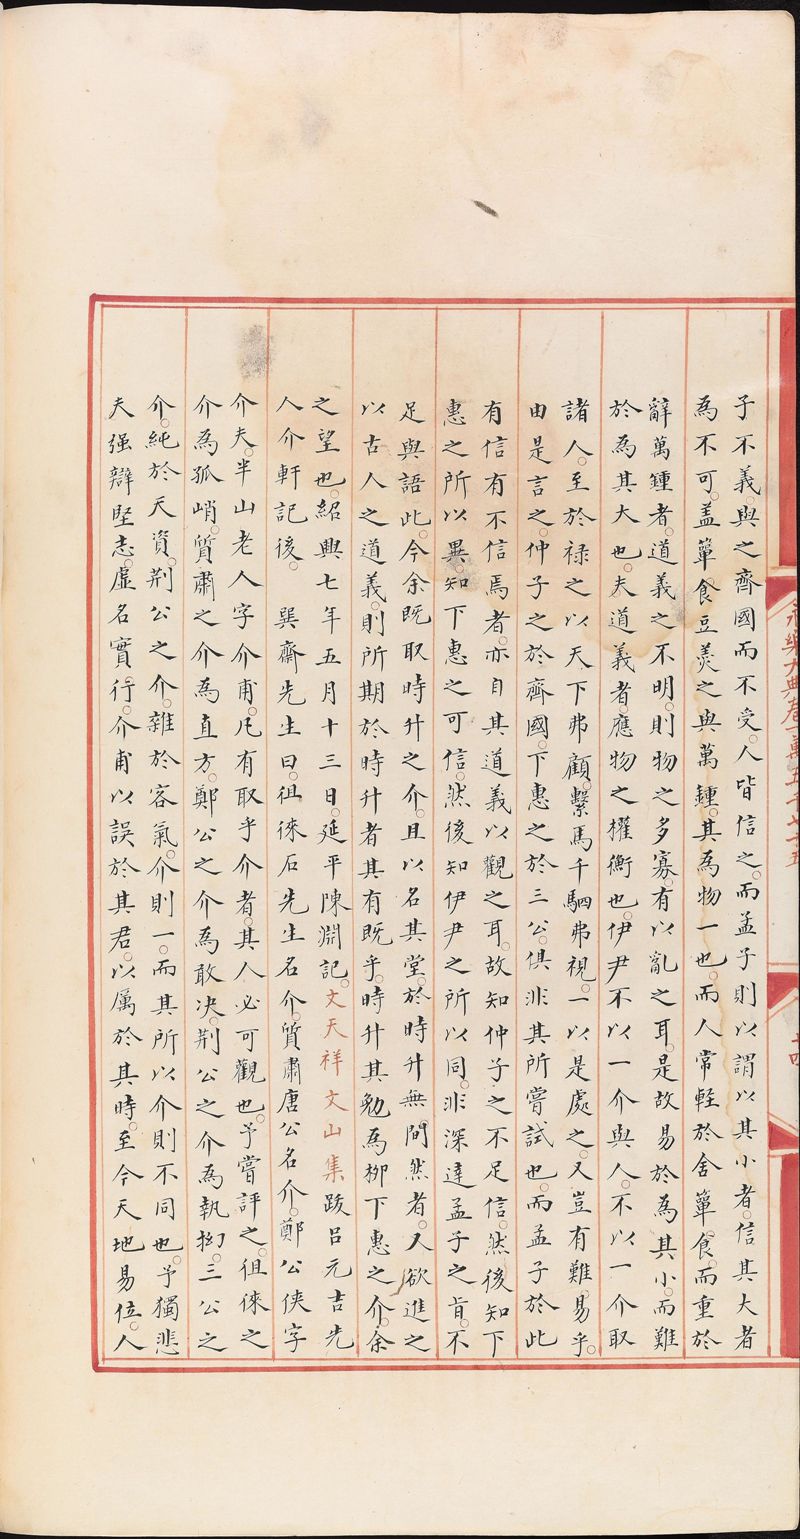 子不義。與之齊國而不受。人皆信之。而孟子則以謂以其小者。信其大者
為不可。盖簞食豆羮之與萬鍾。其為物一也。而人常輕於舍簞食。而重於
辭萬鍾者。道義之不明。則物之多寡。有以亂之耳。是故易於為其小。而難
於為其大也。夫道義者。應物之權衡也。伊尹不以一介與人。不以一介取
諸人。至於禄之以天下弗顧。繫馬千駟弗視。一以是處之。又豈有難易乎。
由是言之。仲子之於齊國。下惠之於三公。俱非其所嘗試也。而孟子於此
有信有不信焉者。亦自其道義以觀之耳。故知仲子之不足信。然後知下
惠之所以異。知下惠之可信。然後知伊尹之所以同。非深達孟子之旨。不
足與語此。今余既取時升之介。且以名其堂。於時升無間然者。又欲進之
以古人之道義。則所期於時升者其有既乎。時升其勉為柳下惠之介。余
之望也。紹興七年五月十三日。延平陳淵記。文天祥文山集跋吕元吉先
人介軒記後。 巽齋先生曰。徂徠石先生名介。質肅唐公名介。鄭公俠字
介夫。半山老人字介甫。凡有取乎介者。其人必可觀也。予嘗評之。徂徠之
介為孤峭。質肅之介為直方。鄭公之介為敢决。荆公之介為執拗。三公之
介。純於天資。荆公之介。雜於客氣。介則一。而其所以介則不同也。予獨悲
夫强辯堅志。虚名實行。介甫以誤於其君。以厲於其時。至今天地易位。人
永樂大典卷一萬五千七十五
十四